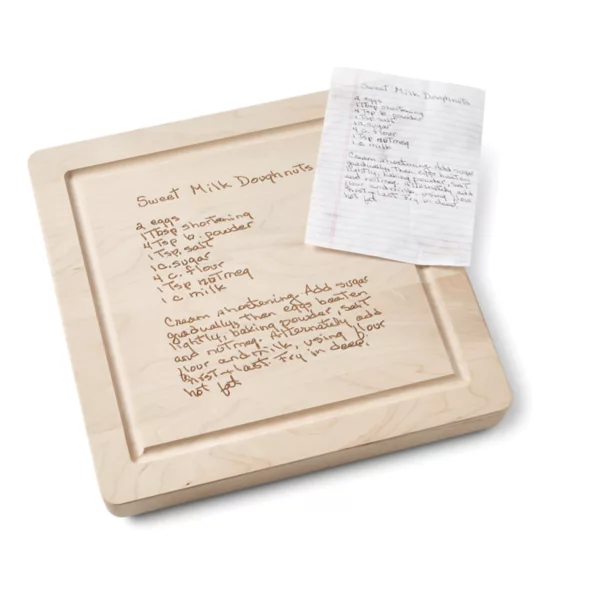 Sweet Milk Doughnuts
2 eggs
1 Tbsp shortening
4 Tsp b. powder
1 Tsp. salt
1 c. sugar
4 c. flour
1 Tsp notmeg
1 c milk
Cream shortening. Add sugar
gradually, then eggs beaten
lightly, baking powder, salt
and notmeg. Alternately add
flour and milk, using flour
first + last Fry in deep.
hot fat
Sweet Milk Doughnuts
2 eggs
1 Tbsp shortening
4 Tsp b. powder
1 Tsp salt
1 c. sugar
4 c. flour
1 Tsp notmeg
1 c milk
Cream shortening. Add sugar
gradually, then eggs beaten
lightly, baking powder, salt
and notmeg. Alternately add
flour and milk, using flour
first + last Fry in deep.
hot fat